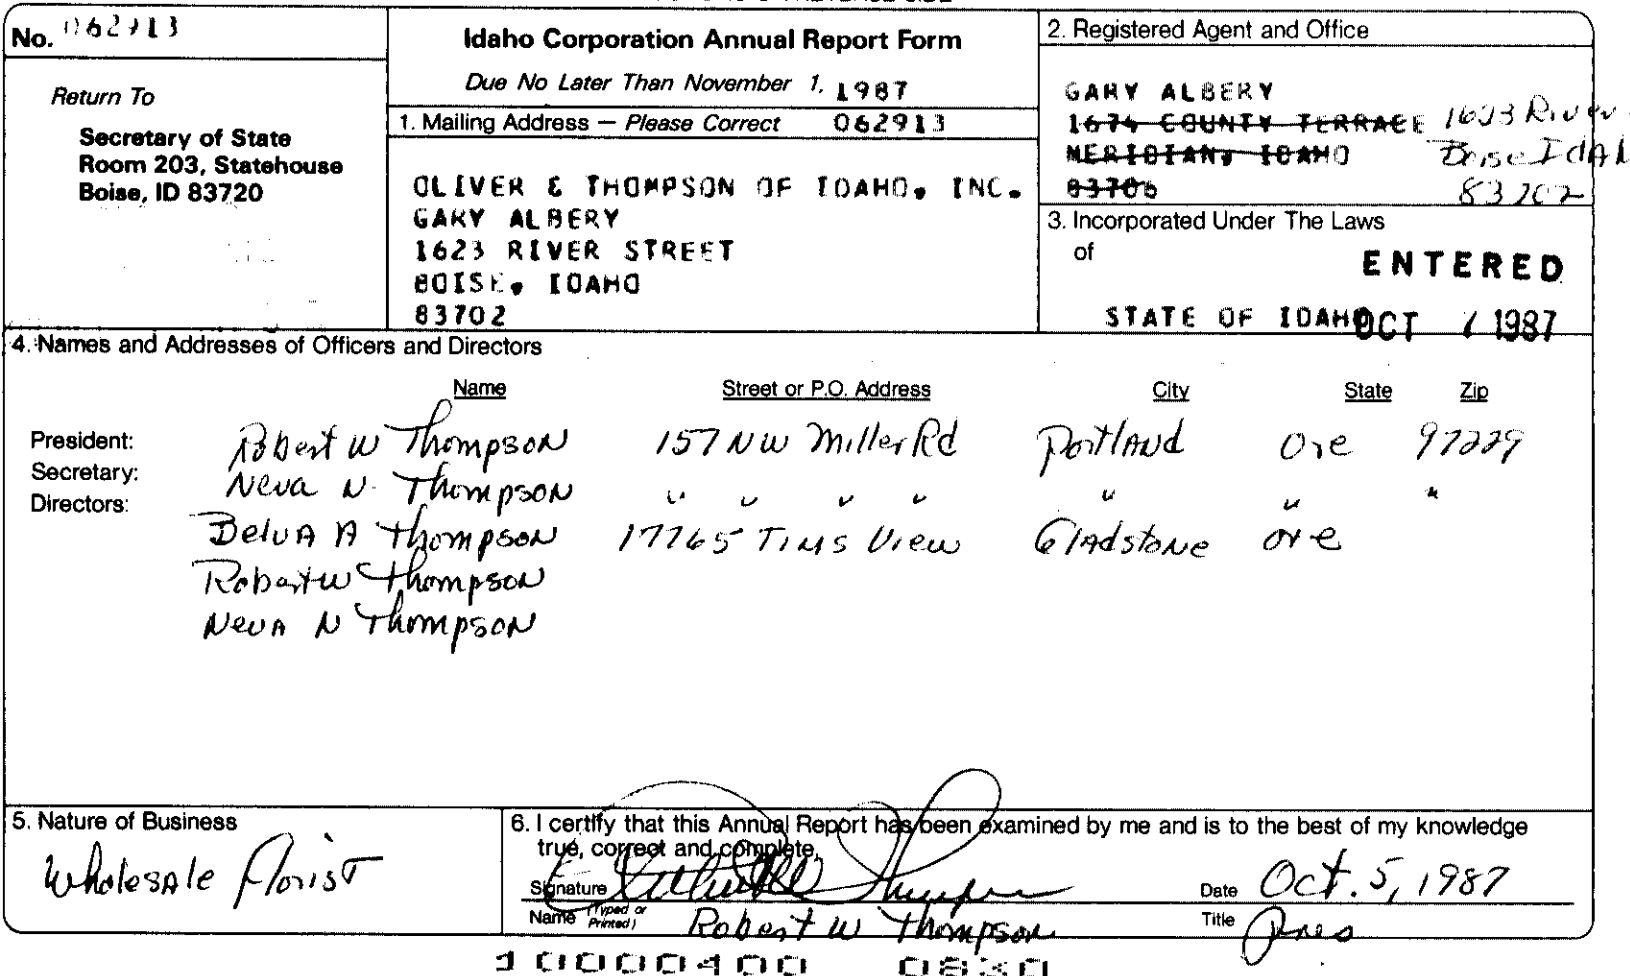 No. 062913
Idaho Corporation Annual Report Form
Due No Later Than November 1, 1987
Return To
Secretary of State
Room 203, Statehouse
Boise, ID 83720
1. Mailing Address — Please Correct 062913
OLIVER & THOMPSON OF IDAHO, INC.
GARY ALBERY
1623 RIVER STREET
BOISE, IDAHO
83702
2. Registered Agent and Office
GARY ALBERY
1674 COUNTY TERRACE 1623 River
MERIDIAN, IDAHO Boise IdAh
83706 83702
3. Incorporated Under The Laws
of
ENTERED
STATE OF IDAHO OCT 1987
4. Names and Addresses of Officers and Directors
Name Street or P.O. Address City State Zip
President: Robert W Thompson 157 NW Miller Rd Portland Ore 97229
Secretary: Neva N. Thompson " " " " " " "
Directors:
Belva A Thompson 17765 Tims View Gladstone ore
Robert W Thompson
Neva N Thompson
5. Nature of Business
Wholesale Florist
6. I certify that this Annual Report has been examined by me and is to the best of my knowledge
true, correct and complete.
Signature Date Oct. 5, 1987
Name (Typed or Printed) Robert W Thompson Title Pres
10000400 0830